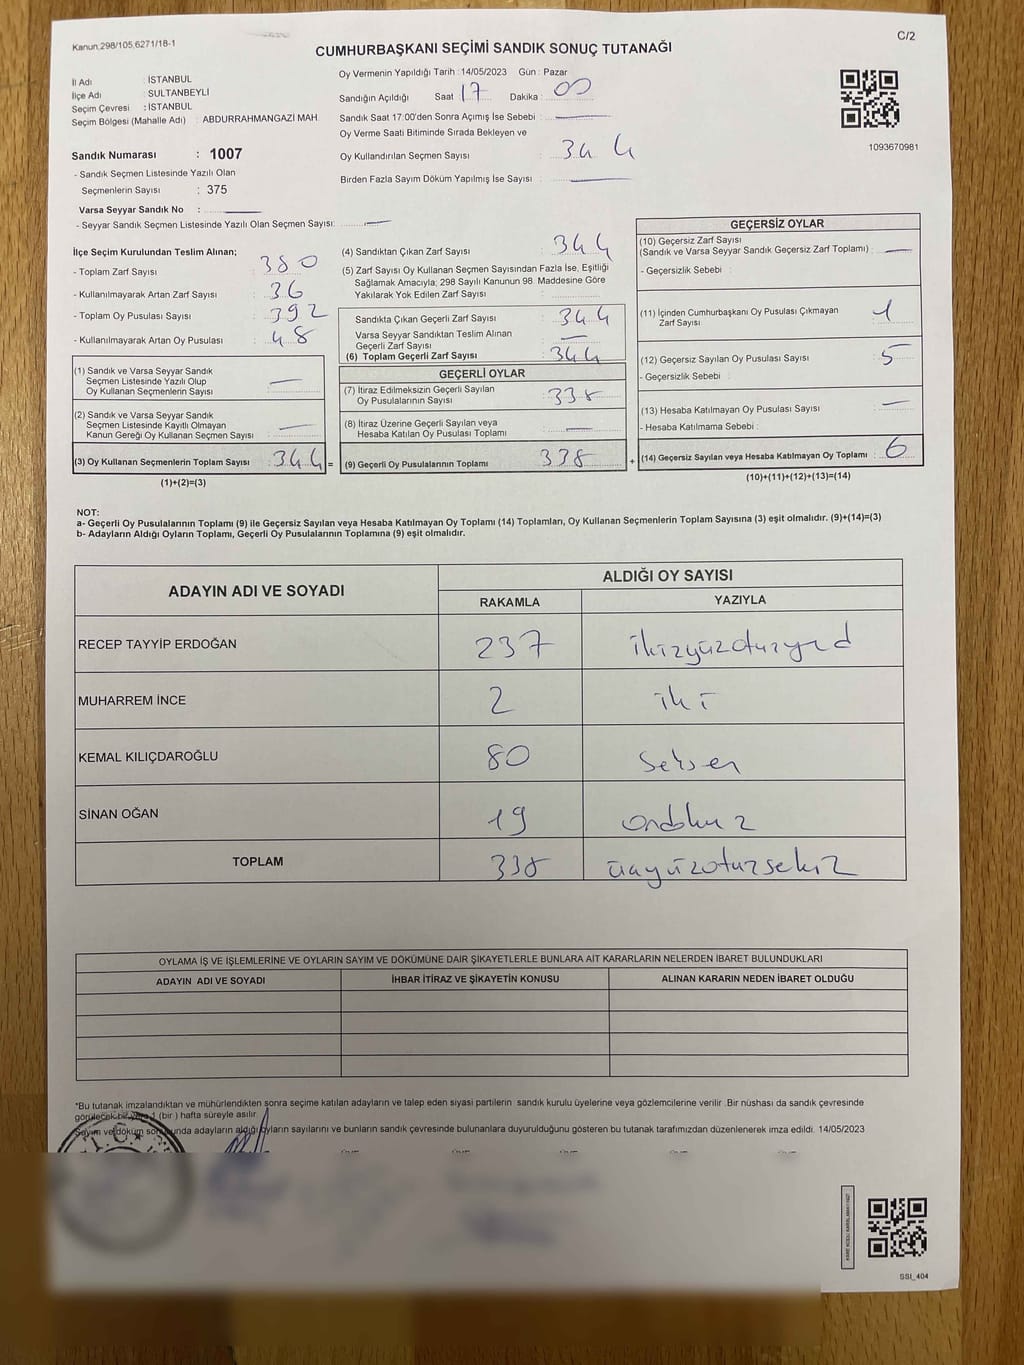 Kanun,298/105,6271/18-1
C/2
CUMHURBAŞKANI SEÇİMİ SANDIK SONUÇ TUTANAĞI
İl Adı : İSTANBUL
İlçe Adı : SULTANBEYLİ
Seçim Çevresi : İSTANBUL
Seçim Bölgesi (Mahalle Adı) : ABDURRAHMANGAZİ MAH.
Sandık Numarası : 1007
- Sandık Seçmen Listesinde Yazılı Olan
Seçmenlerin Sayısı : 375
Varsa Seyyar Sandık No :
- Seyyar Sandık Seçmen Listesinde Yazılı Olan Seçmen Sayısı:
Oy Vermenin Yapıldığı Tarih : 14/05/2023 Gün : Pazar
Sandığın Açıldığı Saat 17 Dakika : 00
Sandık Saat 17:00'den Sonra Açımış İse Sebebi :
Oy Verme Saati Bitiminde Sırada Bekleyen ve
Oy Kullandırılan Seçmen Sayısı : 344
Birden Fazla Sayım Döküm Yapılmış İse Sayısı :
1093670981
İlçe Seçim Kurulundan Teslim Alınan;
- Toplam Zarf Sayısı : 380
- Kullanılmayarak Artan Zarf Sayısı : 36
- Toplam Oy Pusulası Sayısı : 392
- Kullanılmayarak Artan Oy Pusulası : 48
(1) Sandık ve Varsa Seyyar Sandık
Seçmen Listesinde Yazılı Olup
Oy Kullanan Seçmenlerin Sayısı :
(2) Sandık ve Varsa Seyyar Sandık
Seçmen Listesinde Kayıtlı Olmayan
Kanun Gereği Oy Kullanan Seçmen Sayısı :
(3) Oy Kullanan Seçmenlerin Toplam Sayısı : 344 =
(1)+(2)=(3)
(4) Sandıktan Çıkan Zarf Sayısı : 344
(5) Zarf Sayısı Oy Kullanan Seçmen Sayısından Fazla İse, Eşitliği
Sağlamak Amacıyla; 298 Sayılı Kanunun 98. Maddesine Göre
Yakılarak Yok Edilen Zarf Sayısı :
Sandıkta Çıkan Geçerli Zarf Sayısı : 344
Varsa Seyyar Sandıktan Teslim Alınan
Geçerli Zarf Sayısı :
(6) Toplam Geçerli Zarf Sayısı : 344
GEÇERLİ OYLAR
(7) İtiraz Edilmeksizin Geçerli Sayılan
Oy Pusulalarının Sayısı : 338
(8) İtiraz Üzerine Geçerli Sayılan veya
Hesaba Katılan Oy Pusulası Toplamı :
(9) Geçerli Oy Pusulalarının Toplamı : 338 +
GEÇERSİZ OYLAR
(10) Geçersiz Zarf Sayısı
(Sandık ve Varsa Seyyar Sandık Geçersiz Zarf Toplamı) :
- Geçersizlik Sebebi :
(11) İçinden Cumhurbaşkanı Oy Pusulası Çıkmayan
Zarf Sayısı : 1
(12) Geçersiz Sayılan Oy Pusulası Sayısı : 5
- Geçersizlik Sebebi :
(13) Hesaba Katılmayan Oy Pusulası Sayısı :
- Hesaba Katılmama Sebebi :
(14) Geçersiz Sayılan veya Hesaba Katılmayan Oy Toplamı : 6
(10)+(11)+(12)+(13)=(14)
NOT:
a- Geçerli Oy Pusulalarının Toplamı (9) ile Geçersiz Sayılan veya Hesaba Katılmayan Oy Toplamı (14) Toplamları, Oy Kullanan Seçmenlerin Toplam Sayısına (3) eşit olmalıdır. (9)+(14)=(3)
b- Adayların Aldığı Oyların Toplamı, Geçerli Oy Pusulalarının Toplamına (9) eşit olmalıdır.
ADAYIN ADI VE SOYADI
ALDIĞI OY SAYISI
RAKAMLA YAZIYLA
RECEP TAYYİP ERDOĞAN 237 ikizyüzotuzyed
MUHARREM İNCE 2 iki
KEMAL KILIÇDAROĞLU 80 Seksen
SİNAN OĞAN 19 ondokuz
TOPLAM 338 üçyüzotuzsekiz
OYLAMA İŞ VE İŞLEMLERİNE VE OYLARIN SAYIM VE DÖKÜMÜNE DAİR ŞİKAYETLERLE BUNLARA AİT KARARLARIN NELERDEN İBARET BULUNDUKLARI
ADAYIN ADI VE SOYADI İHBAR İTİRAZ VE ŞİKAYETİN KONUSU ALINAN KARARIN NEDEN İBARET OLDUĞU
*Bu tutanak imzalandıktan ve mühürlendikten sonra seçime katılan adayların ve talep eden siyasi partilerin sandık kurulu üyelerine veya gözlemcilerine verilir. Bir nüshası da sandık çevresinde
görülecek bir yere 1 (bir ) hafta süreyle asılır.
Sayım ve döküm sonucunda adayların aldığı oyların sayılarını ve bunların sandık çevresinde bulunanlara duyurulduğunu gösteren bu tutanak tarafımızdan düzenlenerek imza edildi. 14/05/2023
T.C.
SSI_404